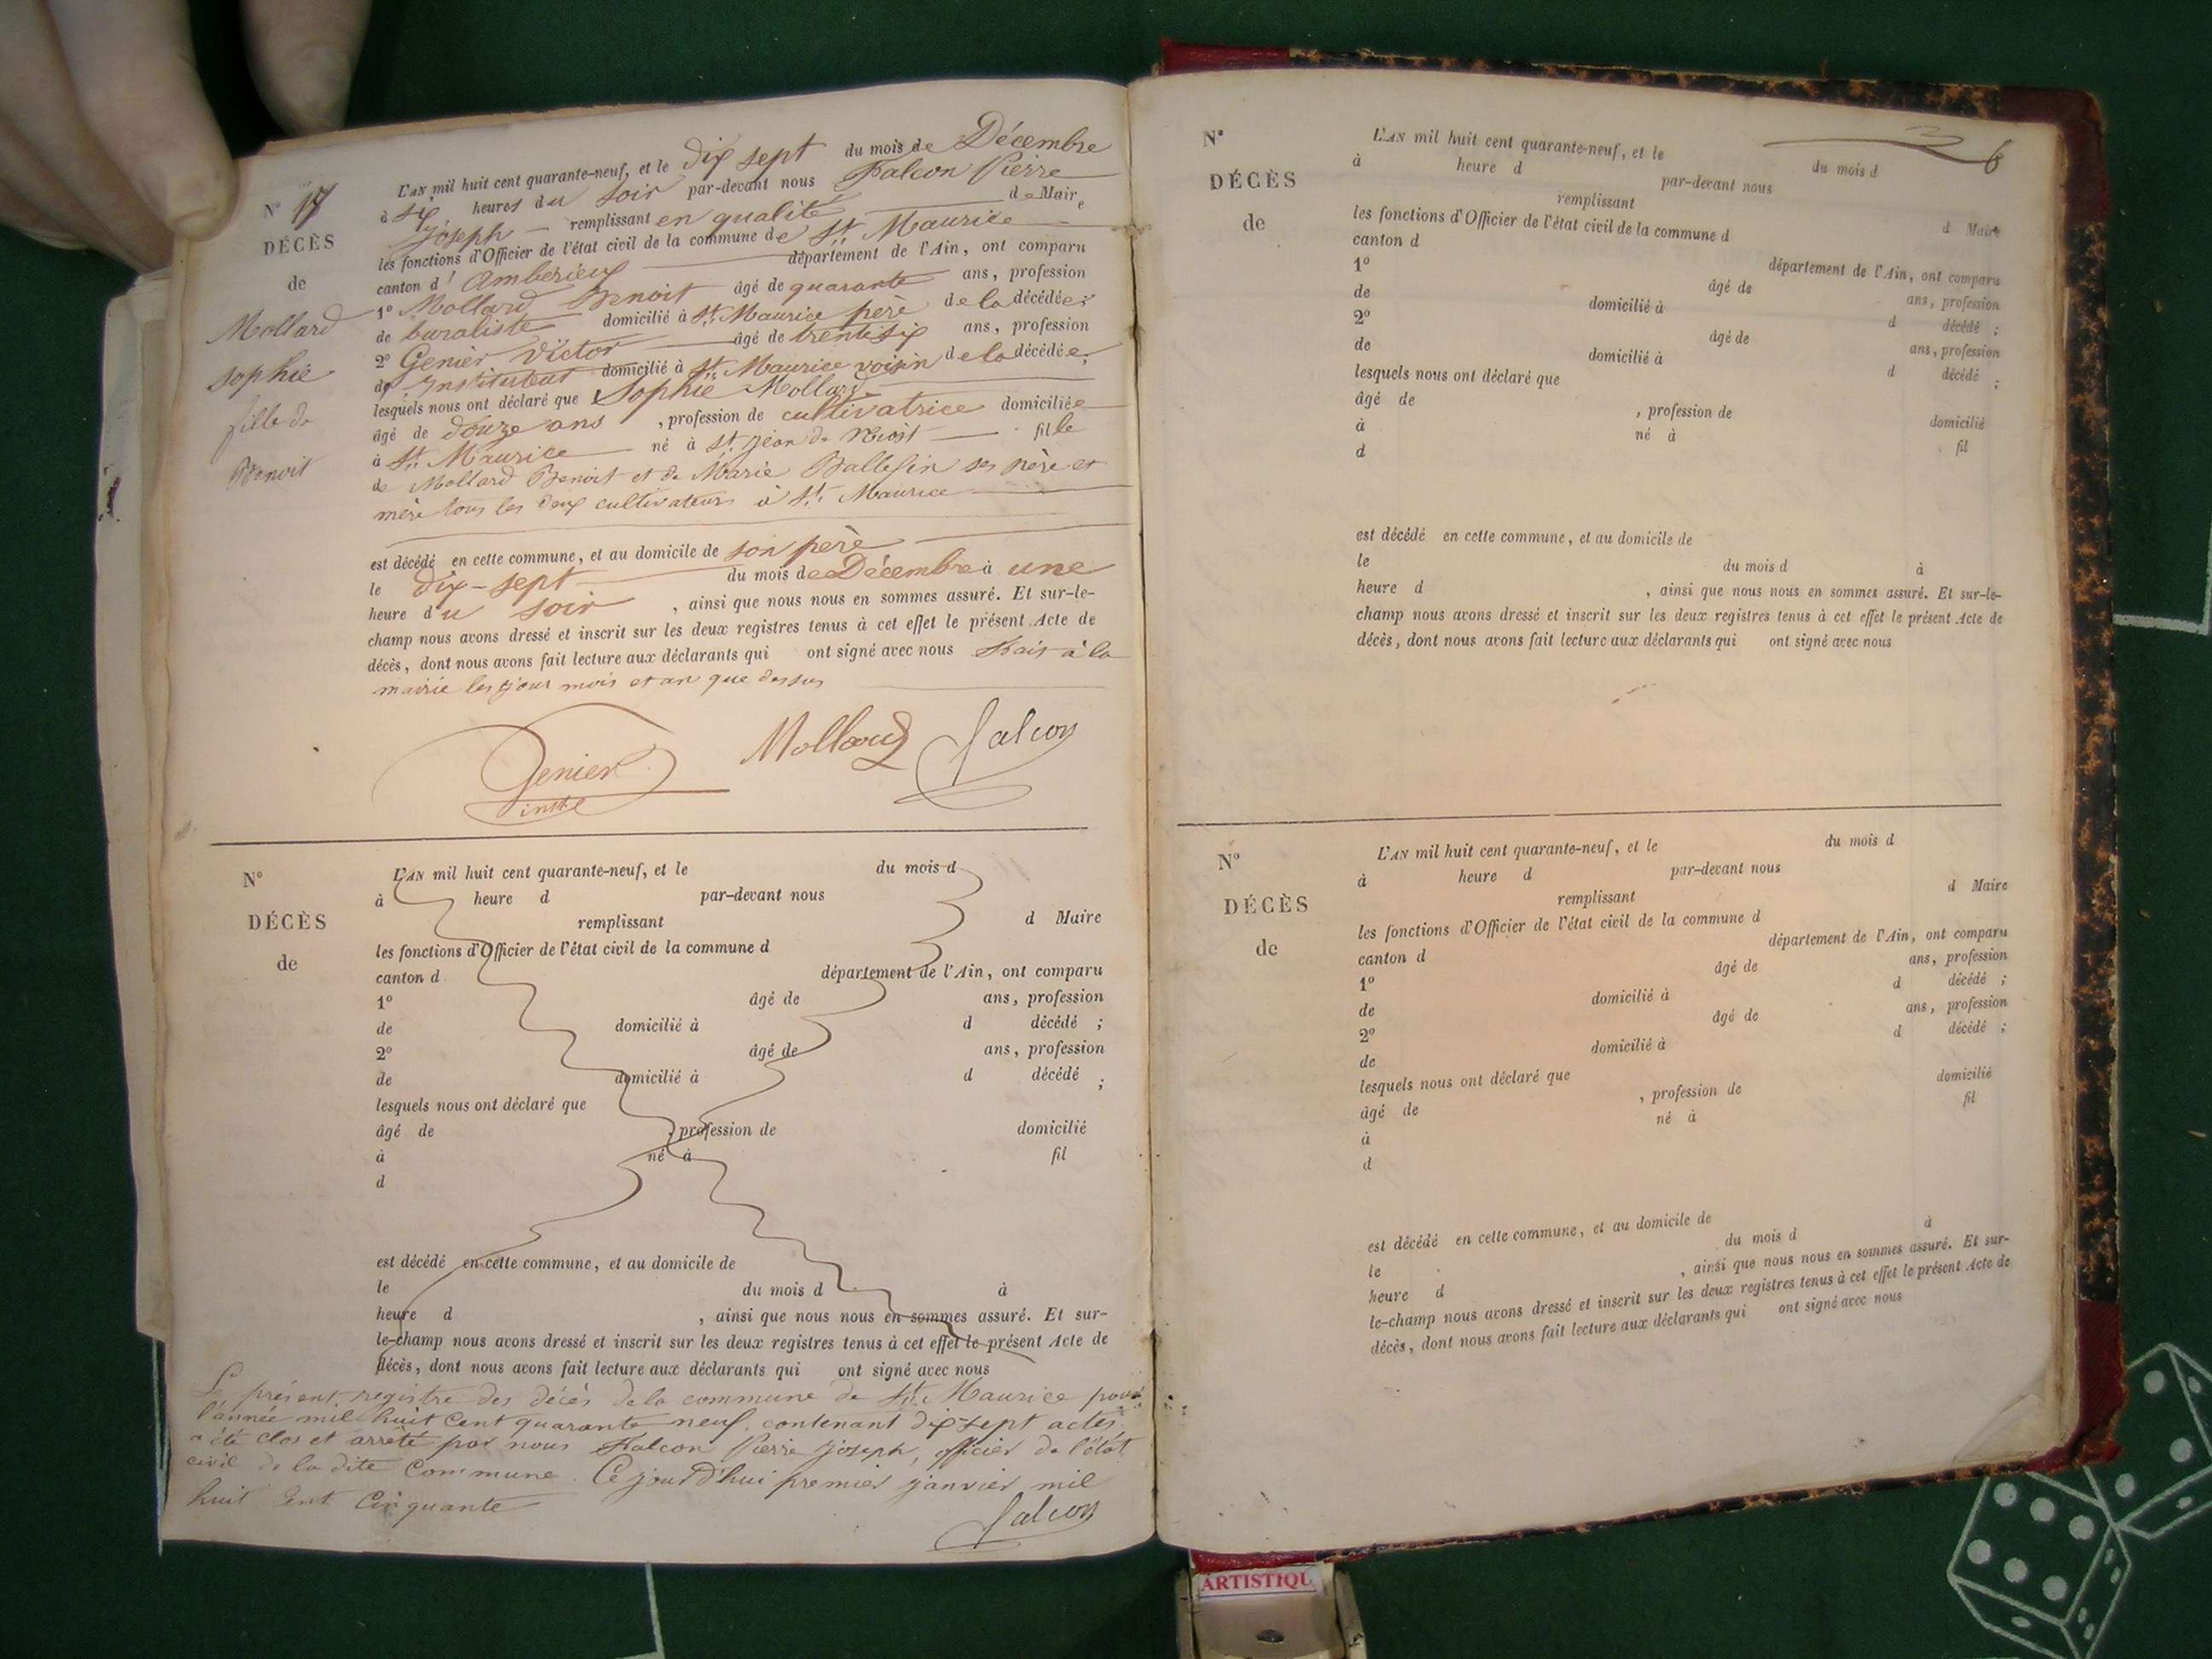 L'AN mil huit cent quarante-neuf, et le dix sept du mois de Décembre
à six heures du soir par-devant nous Falcon Pierre
Joseph remplissant en qualité de Maire
les fonctions d'Officier de l'état civil de la commune de St. Maurice
canton d' Amberieux département de l'Ain, ont comparu
1° Mollard Benoit âgé de quarante ans, profession
de buraliste domicilié à St. Maurice père de la décédée;
2° Genier Victor âgé de trente six ans, profession
d' Instituteur domicilié à St. Maurice voisin de la décédée;
lesquels nous ont déclaré que Sophie Mollard
âgé de douze ans , profession de cultivatrice domiciliée
à St. Maurice né à St. Jean de Niost fille
de Mollard Benoit et de Marie ses père et
mère tous les deux cultivateurs à St. Maurice
est décédé en cette commune, et au domicile de son père
le dix-sept du mois de Décembre à une
heure du soir , ainsi que nous nous en sommes assuré. Et sur-le-
champ nous avons dressé et inscrit sur les deux registres tenus à cet effet le présent Acte de
décès, dont nous avons fait lecture aux déclarants qui ont signé avec nous Fait à la
mairie les jour mois et an que dessus
N° 17
DÉCÈS
de
Mollard
sophie
fille de
Benoit
Genier
Mollard
falcon
N°
DÉCÈS
de
L'AN mil huit cent quarante-neuf, et le du mois d
à heure d par-devant nous
remplissant d Maire
les fonctions d'Officier de l'état civil de la commune d
canton d département de l'Ain, ont comparu
1° âgé de ans, profession
de domicilié à d décédé ;
2° âgé de ans, profession
de domicilié à d décédé ;
lesquels nous ont déclaré que
âgé de , profession de domicilié
à né à fil
d
est décédé en cette commune, et au domicile de
le du mois d à
heure d , ainsi que nous nous en sommes assuré. Et sur-
le-champ nous avons dressé et inscrit sur les deux registres tenus à cet effet le présent Acte de
décès, dont nous avons fait lecture aux déclarants qui ont signé avec nous
Le présent registre des décès de la commune de St. Maurice pour
l'année mil huit cent quarante neuf, contenant dix-sept actes,
a été clos et arrêté par nous Falcon Pierre Joseph, officier de l'état
civil de la dite Commune. Ce jourd'hui premier janvier mil
huit cent Cinquante
falcon
6
N°
DÉCÈS
de
L'AN mil huit cent quarante-neuf, et le du mois d
à heure d par-devant nous
remplissant d Maire
les fonctions d'Officier de l'état civil de la commune d
canton d département de l'Ain, ont comparu
1° âgé de ans, profession
de domicilié à d décédé ;
2° âgé de ans, profession
de domicilié à d décédé ;
lesquels nous ont déclaré que
âgé de , profession de domicilié
à né à fil
d
est décédé en cette commune, et au domicile de
le du mois d à
heure d , ainsi que nous nous en sommes assuré. Et sur-le-
champ nous avons dressé et inscrit sur les deux registres tenus à cet effet le présent Acte de
décès, dont nous avons fait lecture aux déclarants qui ont signé avec nous
N°
DÉCÈS
de
L'AN mil huit cent quarante-neuf, et le du mois d
à heure d par-devant nous
remplissant d Maire
les fonctions d'Officier de l'état civil de la commune d
canton d département de l'Ain, ont comparu
1° âgé de ans, profession
de domicilié à d décédé ;
2° âgé de ans, profession
de domicilié à d décédé ;
lesquels nous ont déclaré que
âgé de , profession de domicilié
à né à fil
d
est décédé en cette commune, et au domicile de
le du mois d à
heure d , ainsi que nous nous en sommes assuré. Et sur-
le-champ nous avons dressé et inscrit sur les deux registres tenus à cet effet le présent Acte de
décès, dont nous avons fait lecture aux déclarants qui ont signé avec nous
ARTISTIQU